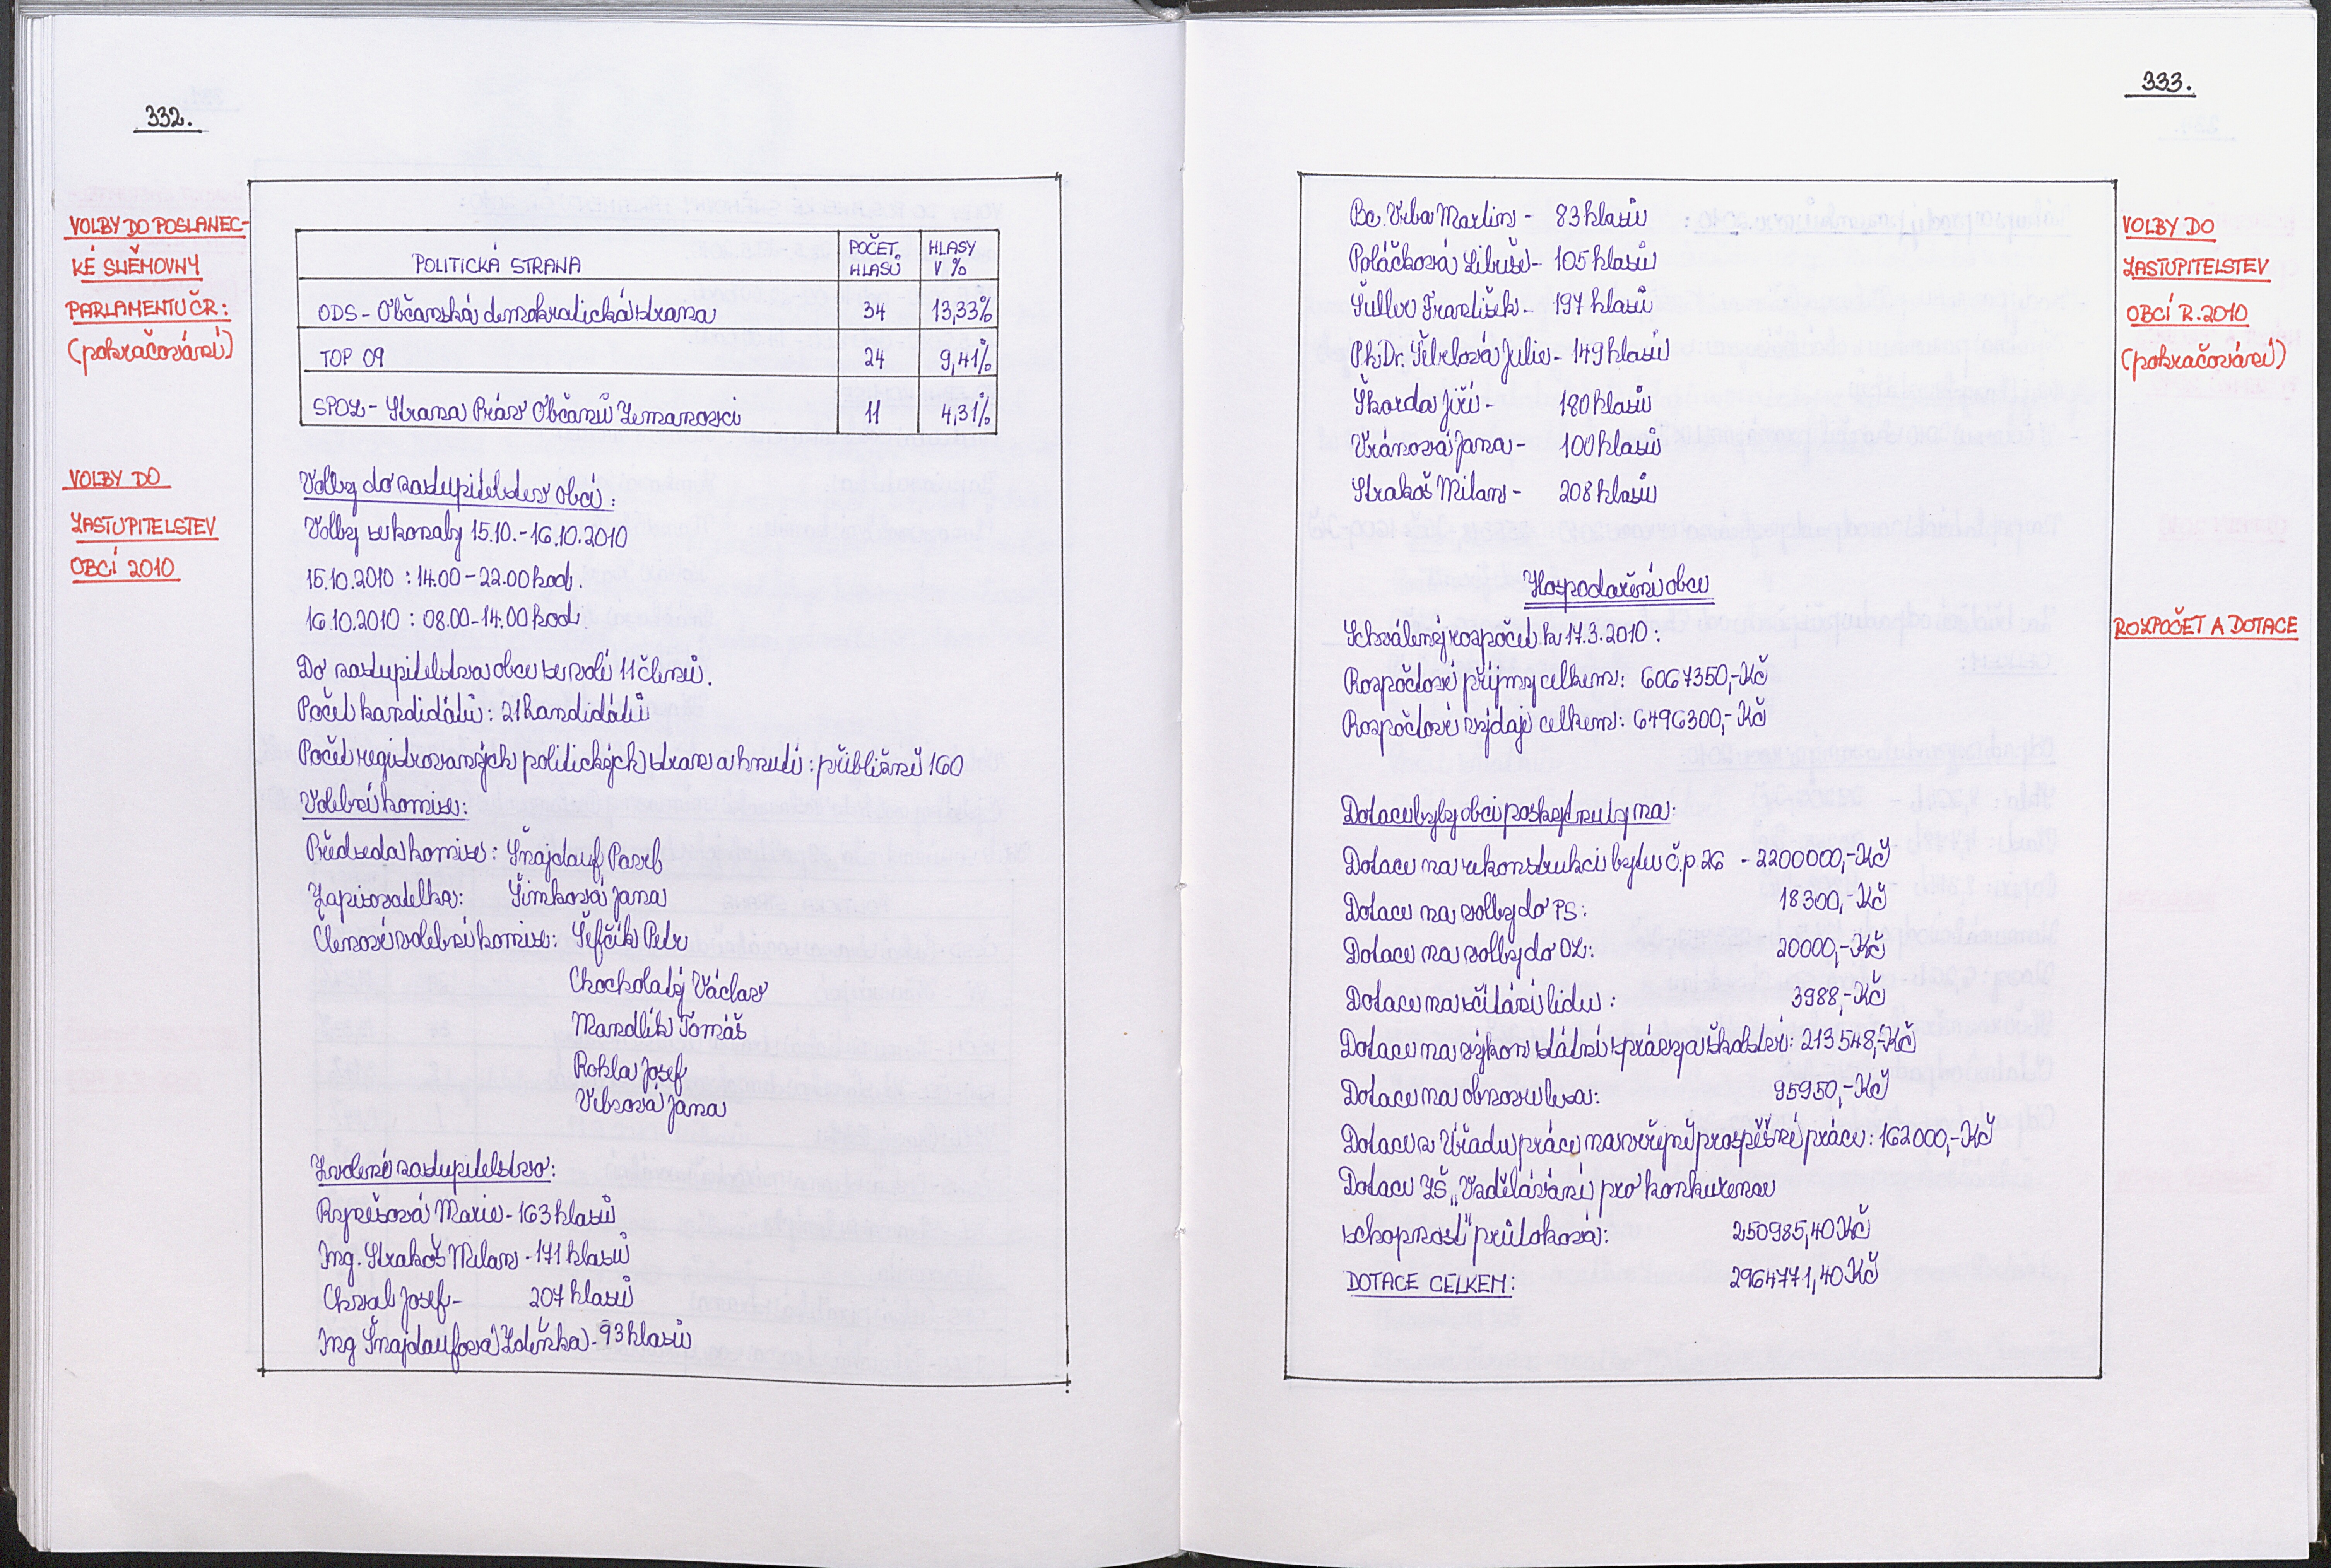 332.
VOLBY DO POSLANEC-
KÉ SNĚMOVNY
PARLAMENTU ČR:
(pokračování)
POLITICKÁ STRANA POČET HLASŮ HLASY V %
ODS - Občanská demokratická strana 34 13,33%
TOP 09 24 9,41%
SPOZ - Strana Práv Občanů Zemanovci 11 4,31%
VOLBY DO
ZASTUPITELSTEV
OBCÍ 2010
Volby do zastupitelstev obcí:
Volby se konaly 15.10.-16.10.2010
15.10.2010 : 14.00-22.00 hod.
16.10.2010 : 08.00-14.00 hod.
Do zastupitelstva obce se volí 11 členů.
Počet kandidátů: 21 kandidátů
Počet registrovaných politických stran a hnutí: přibližně 160
Volební komise:
Předseda komise: Šnajdauf Pavel
Zapisovatelka: Šimková Jana
Členové volební komise: Šefčík Petr
Chocholatý Václav
Mandlík Tomáš
Rokla Josef
Jana
Zvolené zastupitelstvo:
Marie - 163 hlasů
Ing. Strakoš Milan - 171 hlasů
Chval Josef - 207 hlasů
Ing Šnajdaufová Zdeňka - 93 hlasů
333.
Bc. Vrba Martin - 83 hlasů
Poláčková Libuše - 105 hlasů
Šuller František - 197 hlasů
PhDr. Julie - 149 hlasů
Škarda Jiří - 180 hlasů
Vránová Jana - 100 hlasů
Strakoš Milan - 208 hlasů
VOLBY DO
ZASTUPITELSTEV
OBCÍ R. 2010
(pokračování)
Hospodaření obce
ROZPOČET A DOTACE
Schválený rozpočet k 17.3.2010:
Rozpočtové příjmy celkem: 6067350,-Kč
Rozpočtové výdaje celkem: 6496300,-Kč
Dotace byly obci poskytnuty na:
Dotace na rekonstrukci bytu č.p 26 - 2200000,-Kč
Dotace na volby do PS: 18300,-Kč
Dotace na volby do OZ: 20000,-Kč
Dotace na sčítání lidu: 3988,-Kč
Dotace na výkon státní správy a školství: 213548,-Kč
Dotace na obnovu lesa: 95950,-Kč
Dotace z Úřadu práce na veřejně prospěšné práce: 162000,-Kč
Dotace ZŠ „Vzdělávání pro konkurence
schopnost" průtoková: 250985,40 Kč
DOTACE CELKEM: 2964771,40 Kč